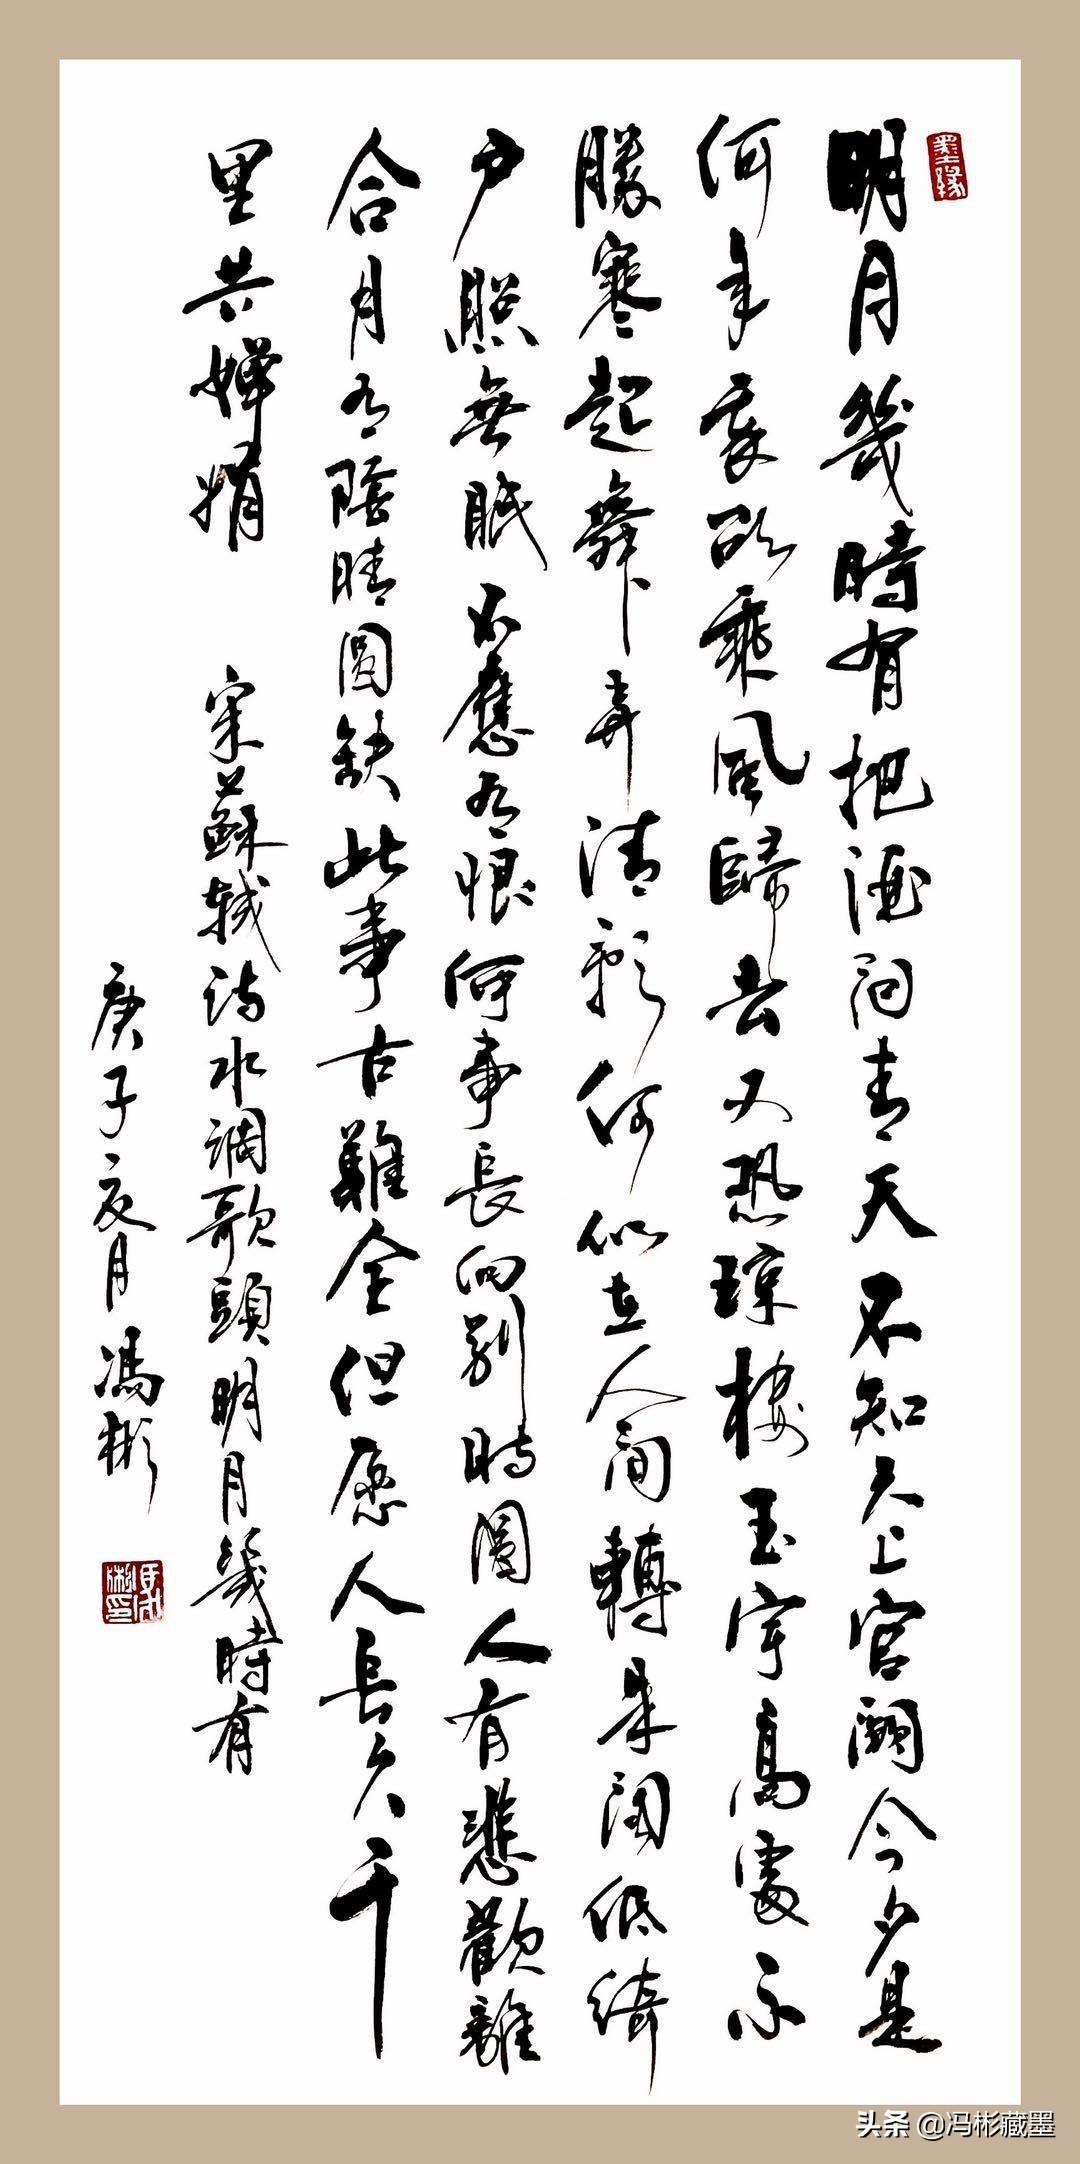 墨缘
明月幾時有把酒问青天不知天上宫闕今夕是
何年我欲乘風歸去又恐琼楼玉宇高處不
勝寒起舞弄清影何似在人间轉朱阁低绮
户照無眠不應有恨何事長向别時圓人有悲歡離
合月有陰晴圓缺此事古難全但愿人長久千
里共嬋娟 宋蘇轼诗水调歌頭明月幾時有
庚子亥月馮彬
馮彬印
头条 @冯彬藏墨